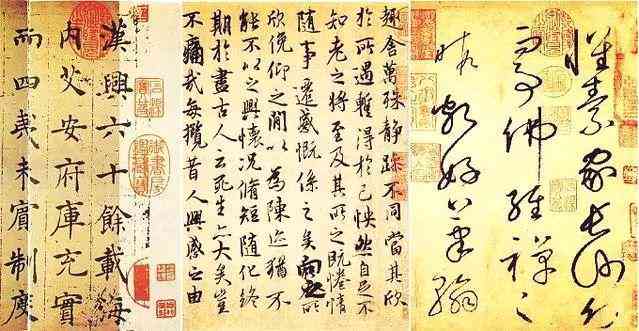 懷素家長沙幼
而事佛經禪之
暇頗好筆翰
趣舍萬殊静躁不同當其欣
於所遇蹔得於己怏然自足不
知老之將至及其所之既惓情
隨事遷感慨係之矣向之所
欣俛仰之閒以為陳迹猶不
能不以之興懷況脩短隨化終
期於盡古人云死生亦大矣豈
不痛哉每攬昔人興感之由
漢興六十餘載海
内艾安府庫充實
而四夷未賓制度